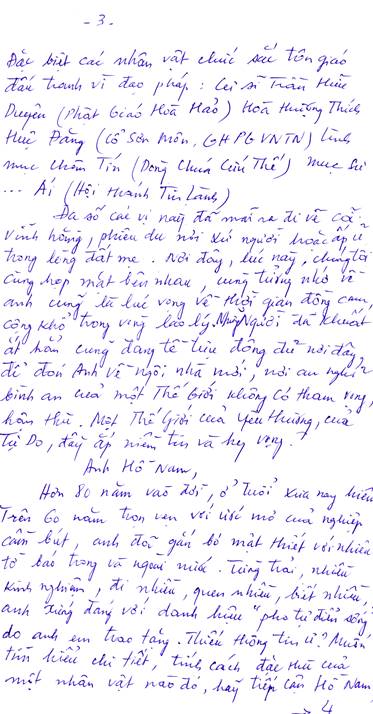 - 3 -
Đặc biệt các nhân vật chức sắc tôn giáo
đấu tranh vì đạo pháp : Cư sĩ Trần Hữu
Duyên (Phật Giáo Hoà Hảo) Hoà Thượng Thích
Huệ Đăng (Cổ Sơn Môn, GHPGVNTN) Linh
mục Chân Tín (Dòng Chúa Cứu Thế) mục sư
... Ái (Hội Thánh Tin Lành)
Đa số các vị này đã mãi ra đi về cõi
vĩnh hằng, phiêu du nơi xứ người hoặc ấp ủ
trong lòng đất mẹ. Nơi đây, lúc này, chúng tôi
cùng họp mặt bên nhau, cùng tưởng nhớ về
anh cũng là lúc vọng về thời gian đồng cam,
cộng khổ trong vòng lao lý. Những Người đã khuất
ắt hẳn cũng đang tề tựu đông đủ nơi đây,
để đón Anh về ngôi nhà mới, nơi an nghỉ
bình an của một Thế Giới không có tham vọng,
hận thù. Một Thế Giới của yêu thương, của
Tự Do, đầy ắp niềm tin và hy vọng.
Anh Hồ Nam,
Hơn 80 năm vào đời, ở tuổi xưa nay hiếm
Trên 60 năm trọn vẹn với ước mơ của nghiệp
cầm bút, anh đã gắn bó mật thiết với nhiều
tờ báo trong và ngoài nước. Từng trải, nhiều
kinh nghiệm, đi nhiều, quen nhiều, biết nhiều,
anh xứng đáng với danh hiệu "pho tự điển sống"
do anh em trao tặng. Thiếu thông tin ư? Muốn
tìm hiểu chi tiết, tính cách đặc thù của
một nhân vật nào đó, hãy tiếp cận Hồ Nam
→ 4